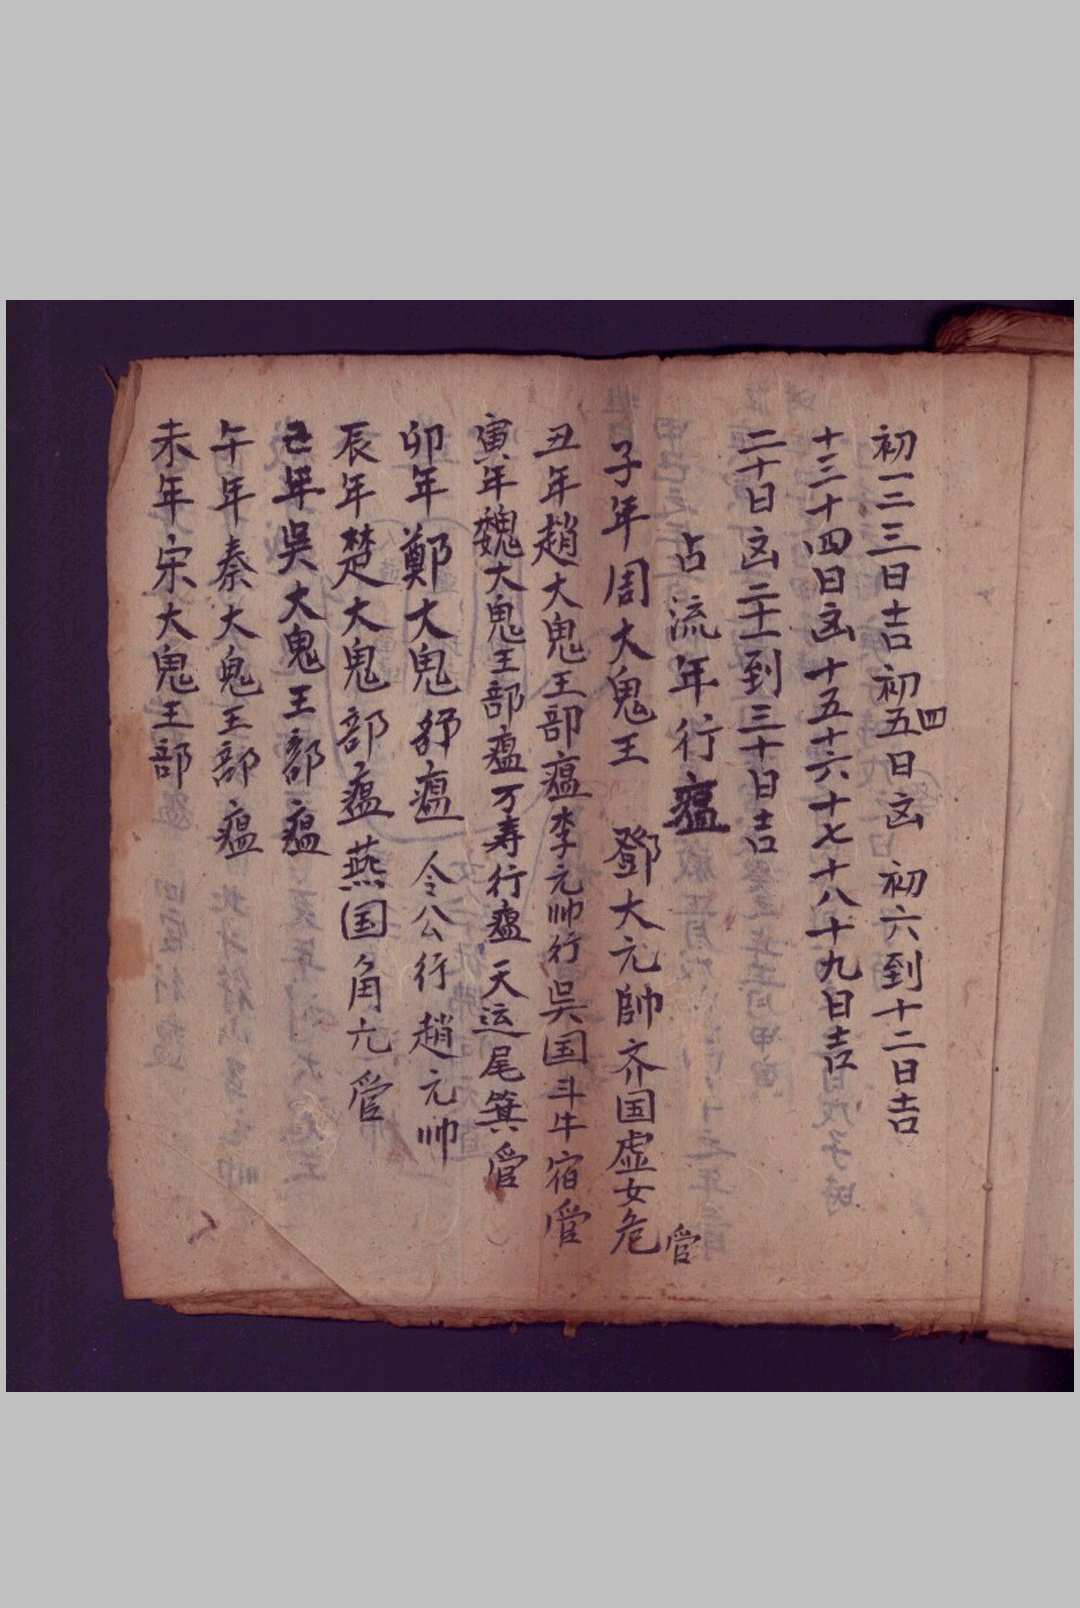 初一二三日吉初四五日凶 初六到十二日吉
十三十四日凶十五十六十七十八十九日吉
二十日凶二十一到三十日吉
占流年行瘟
子年周大鬼王 鄧大元帥齐国虚女危管
丑年趙大鬼王部瘟李元帅行吳国斗牛宿管
寅年魏大鬼王部瘟万寿行瘟天运尾箕管
卯年鄭大鬼 瘟 令公行趙元帅
辰年楚大鬼部瘟燕国角亢管
巳年吳大鬼王部瘟
午年秦大鬼王部瘟
未年宋大鬼王部